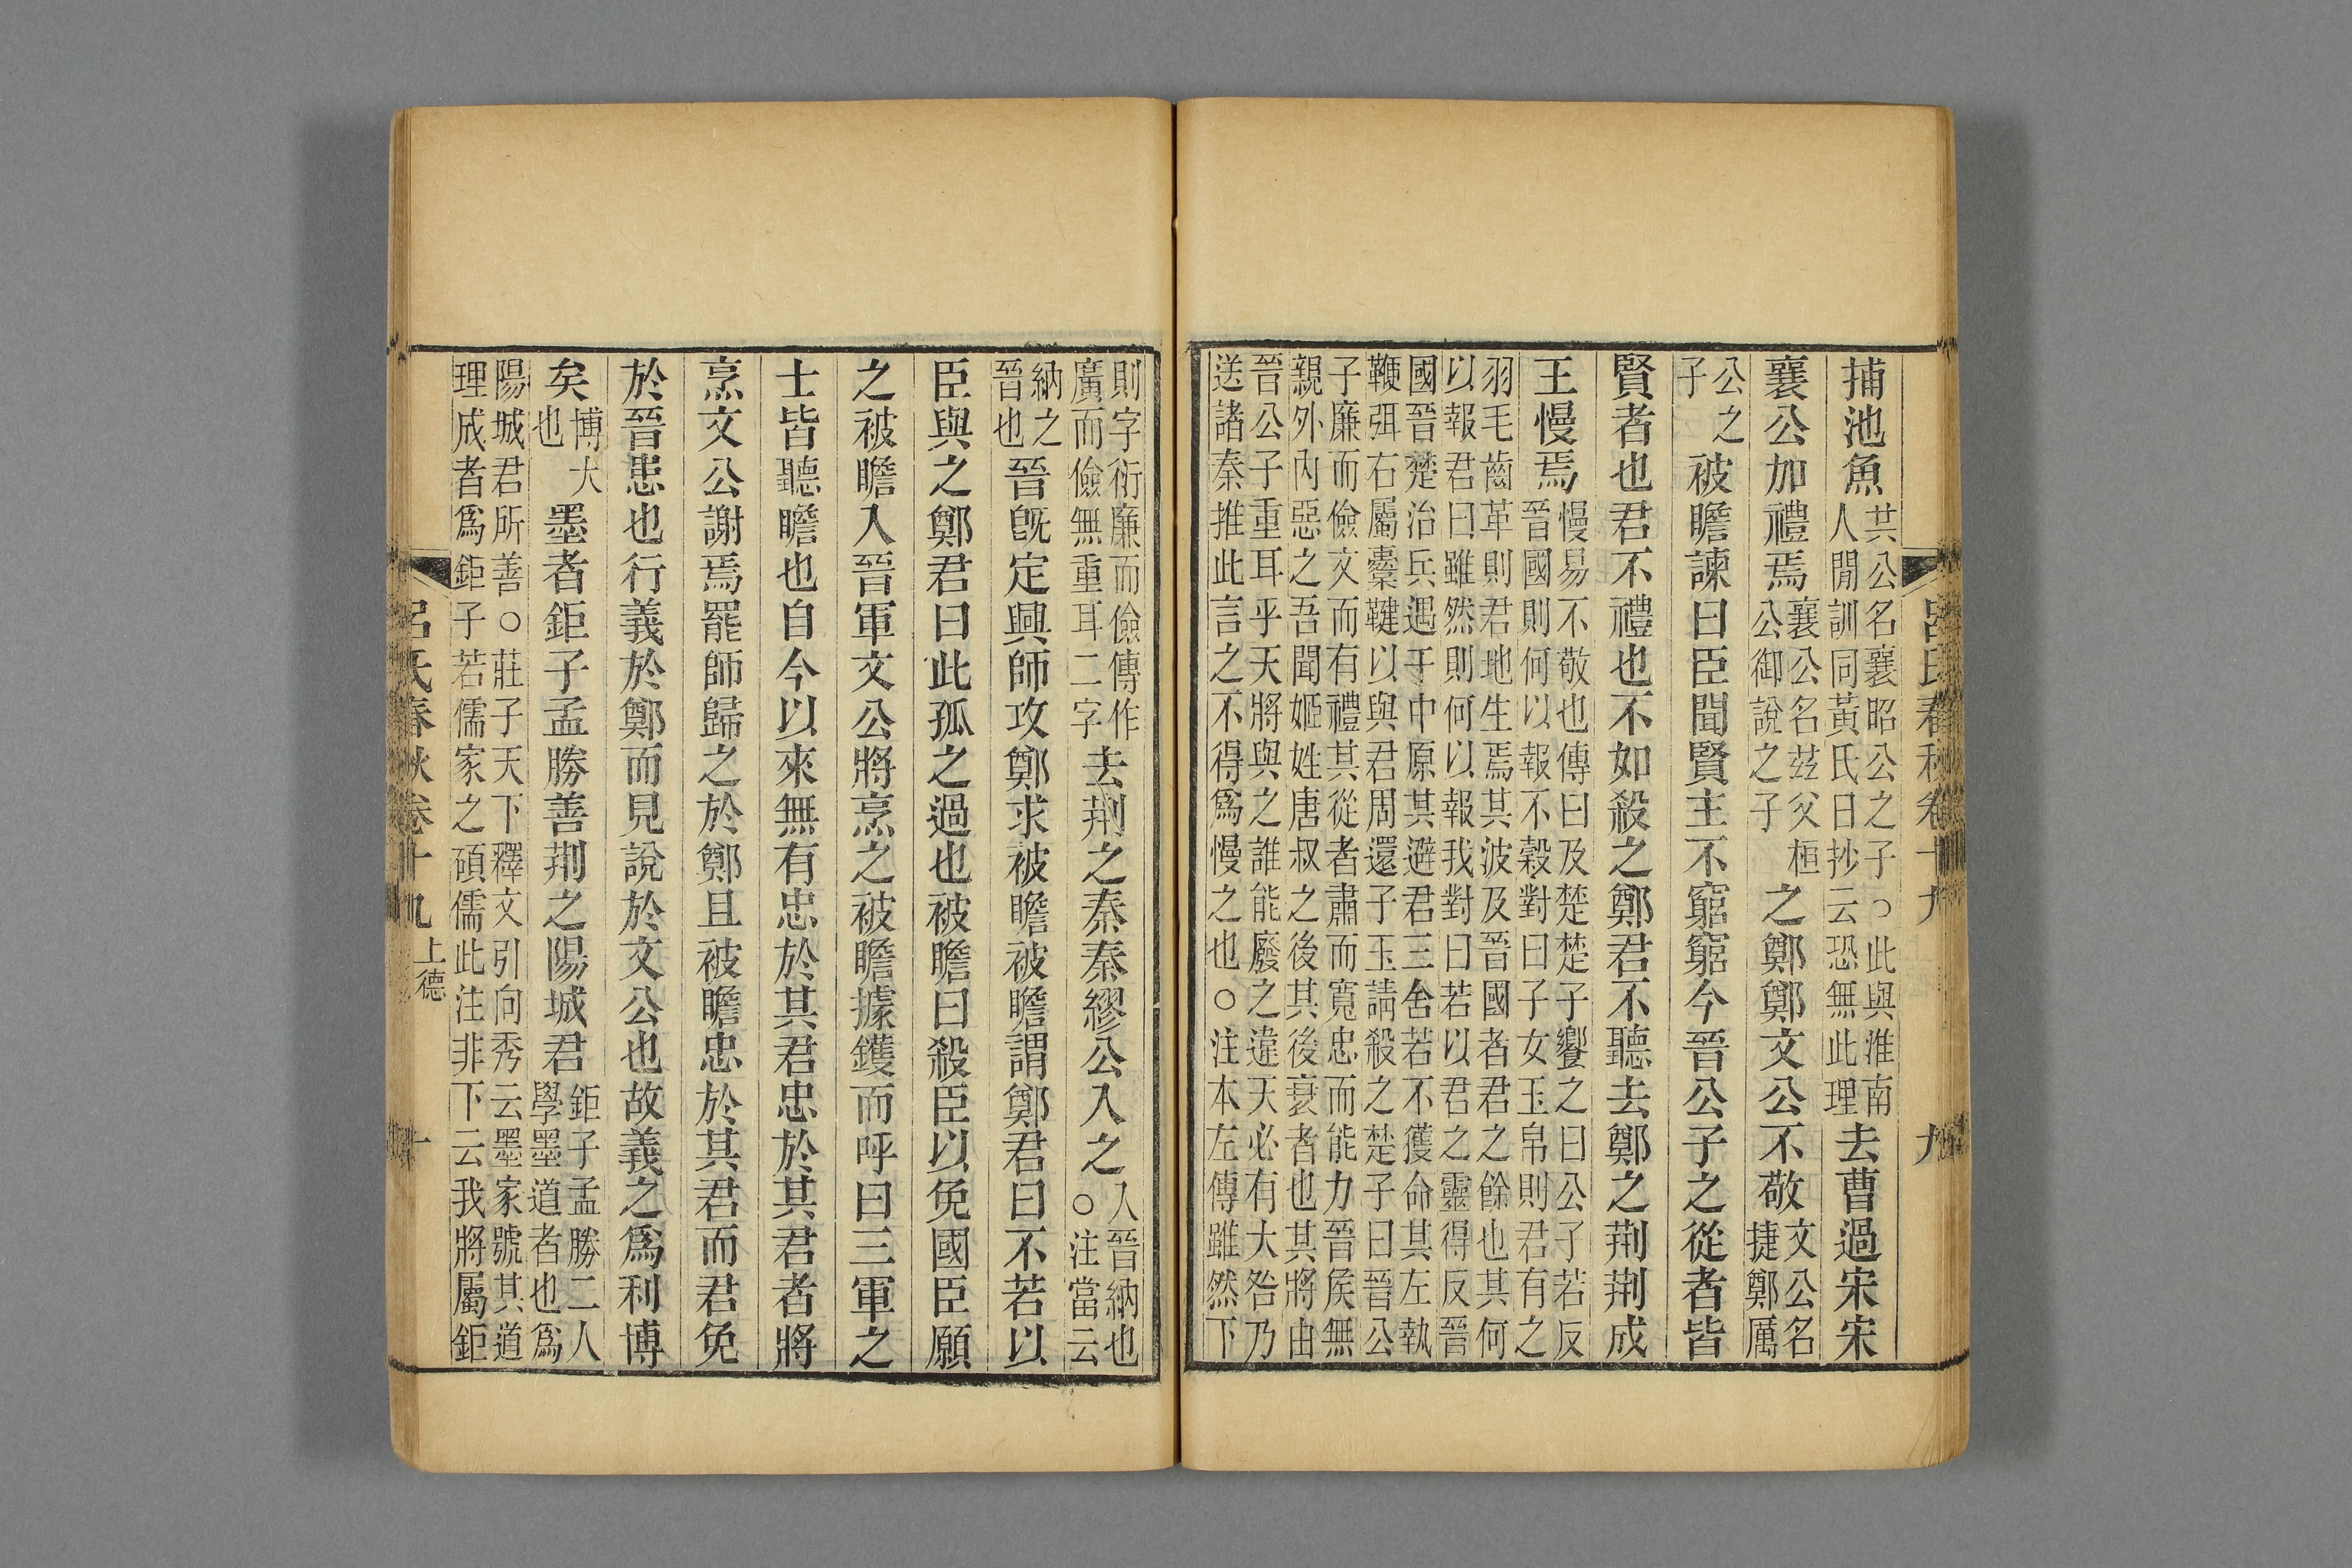 呂氏春秋卷十九 九
捕池魚共公名襄昭公之子○此與淮南人閒訓同黃氏日抄云恐無此理去曹過宋宋
襄公加禮焉襄公名茲父桓公御說之子之鄭鄭文公不敬文公名捷鄭厲
公之子被瞻諫曰臣聞賢主不窮窮今晉公子之從者皆
賢者也君不禮也不如殺之鄭君不聽去鄭之荆荆成
王慢焉慢易不敬也傳曰及楚楚子饗之曰公子若反晉國則何以報不穀對曰子女玉帛則君有之
羽毛齒革則君地生焉其波及晉國者君之餘也其何以報君曰雖然則何以報我對曰若以君之靈得反晉
國晉楚治兵遇于中原其避君三舍若不獲命其左執鞭弭右屬櫜鞬以與君周還子玉請殺之楚子曰晉公
子廉而儉文而有禮其從者肅而寬忠而能力晉侯無親外內惡之吾聞姬姓唐叔之後其後衰者也其將由
晉公子重耳乎天將與之誰能廢之違天必有大咎乃送諸秦推此言之不得爲慢之也○注本左傳雖然下
則字衍廉而儉傳作廣而儉無重耳二字去荆之秦秦繆公入之入晉納也○注當云
納之晉也晉旣定興師攻鄭求被瞻被瞻謂鄭君曰不若以
臣與之鄭君曰此孤之過也被瞻曰殺臣以免國臣願
之被瞻入晉軍文公將烹之被瞻據鑊而呼曰三軍之
士皆聽瞻也自今以來無有忠於其君忠於其君者將
烹文公謝焉罷師歸之於鄭且被瞻忠於其君而君免
於晉患也行義於鄭而見說於文公也故義之爲利博
矣博大也墨者鉅子孟勝善荆之陽城君鉅子孟勝二人學墨道者也爲
陽城君所善○莊子天下釋文引向秀云墨家號其道理成者爲鉅子若儒家之碩儒此注非下云我將屬鉅
呂氏春秋卷十九 上德 十